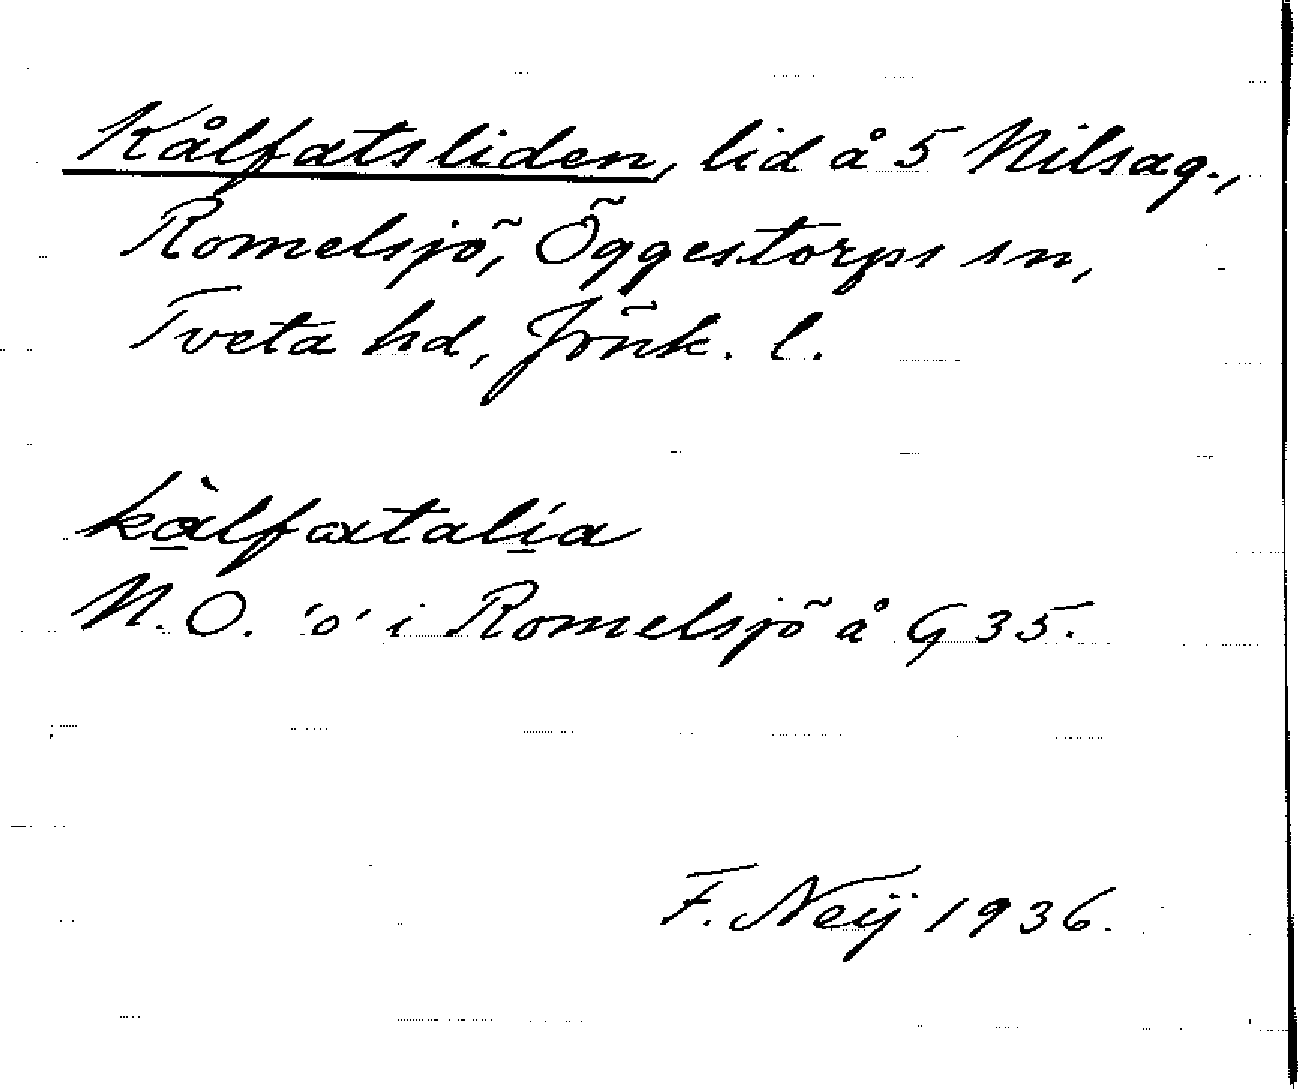 Kålfatsliden, lid å 5 Nilsag.,
Romelsjö, Öggestorps sn,
Tveta hd, Jönk. l.
kàlfatalia
N.O. 'o' i Romelsjö å G 35.
F. Neij 1936.